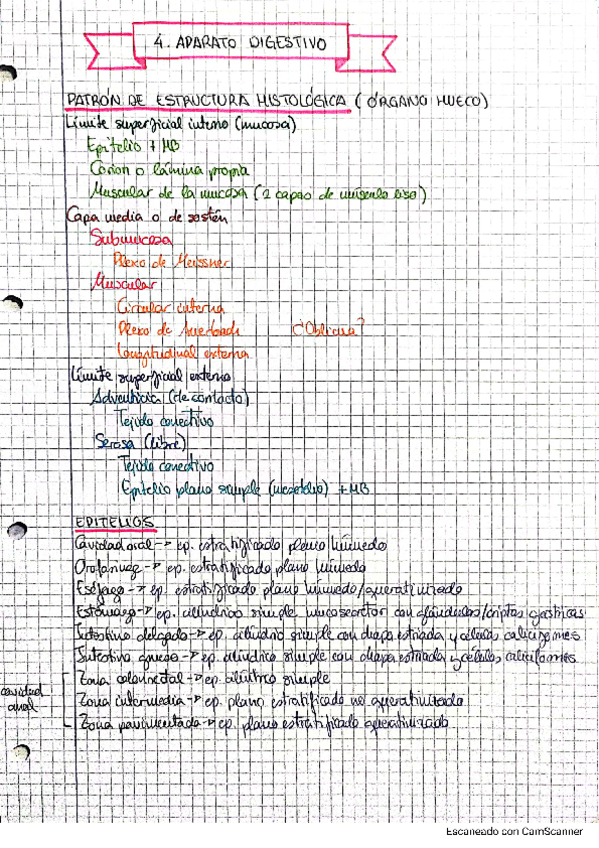 4. APARATO DIGESTIVO
PATRÓN DE ESTRUCTURA HISTOLÓGICA (ÓRGANO HUECO)
Límite superficial interno (mucosa)
Epitelio + MB
Corion o lámina propia
Muscular de la mucosa (2 capas de músculo liso)
Capa media o de sostén
Submucosa
Plexo de Meissner
Muscular
Circular interna
Plexo de Auerbach ¿Oblicua?
Longitudinal externa
Límite superficial externo
Adventicia (de contacto)
Tejido conectivo
Serosa (libre)
Tejido conectivo
Epitelio plano simple (mesotelio) + MB
EPITELIOS
Cavidad oral -> ep. estratificado plano húmedo
Orofaringe -> ep. estratificado plano húmedo
Esófago -> ep. estratificado plano húmedo/queratinizado
Estómago -> ep. cilíndrico simple mucosecretor con glándulas/criptas gástricas
Intestino delgado -> ep. cilíndrico simple con chapa estriada y células caliciformes
Intestino grueso -> ep. cilíndrico simple con chapa estriada y células caliciformes
cavidad anal
Zona colorrectal -> ep. cilíndrico simple
Zona intermedia -> ep. plano estratificado no queratinizado
Zona pavimentada -> ep. plano estratificado queratinizado
Escaneado con CamScanner